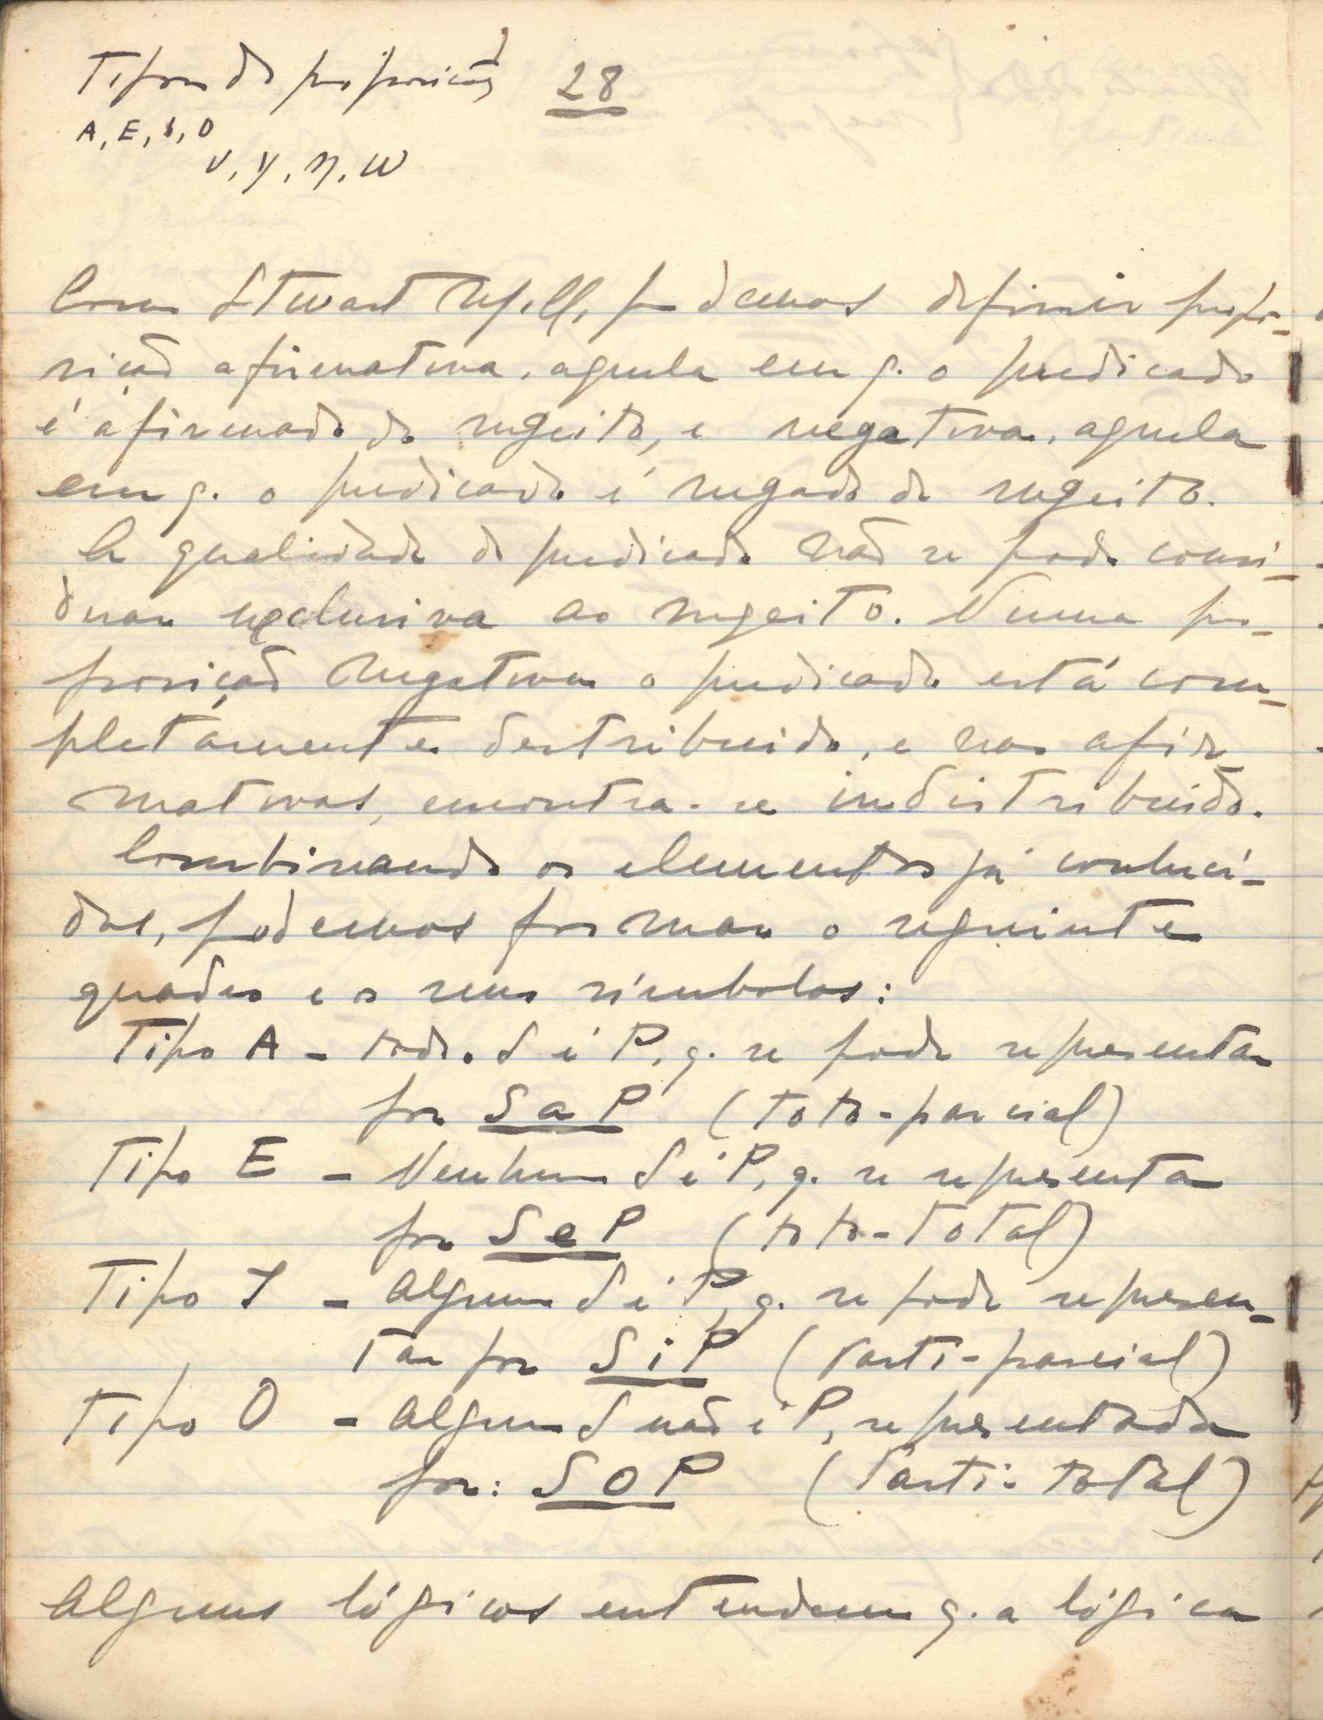 Tipos de proposição
28
A, E, I, O
U, Y, η, ω
Com Stwart Mill, podemos definir propo-
sição afirmativa, aquela em q. o predicado
é afirmado do sugeito, e negativa, aquela
em q. o predicado é negado do sugeito.
A qualidade do predicado não se pode consi-
derar exclusiva ao sugeito. Numa pro-
posição negativa o predicado está com-
pletamente destribuido, e nas afir-
mativas, encontra-se indistribuido.
Combinando os elementos já conheci-
dos, podemos formar o seguinte
quadro e os seus símbolos:
Tipo A - todo S é P, q. se pode representar
por S a P (toto-parcial)
Tipo E - Nenhum S é P, q. se representa
por S e P (toto-total)
Tipo I - Algum S é P, q. se pode represen-
tar por S i P (Parti-parcial)
Tipo O - Algum S não é P, representada
por: S O P (Parti-total)
Alguns lógicos entendem q. a lógica